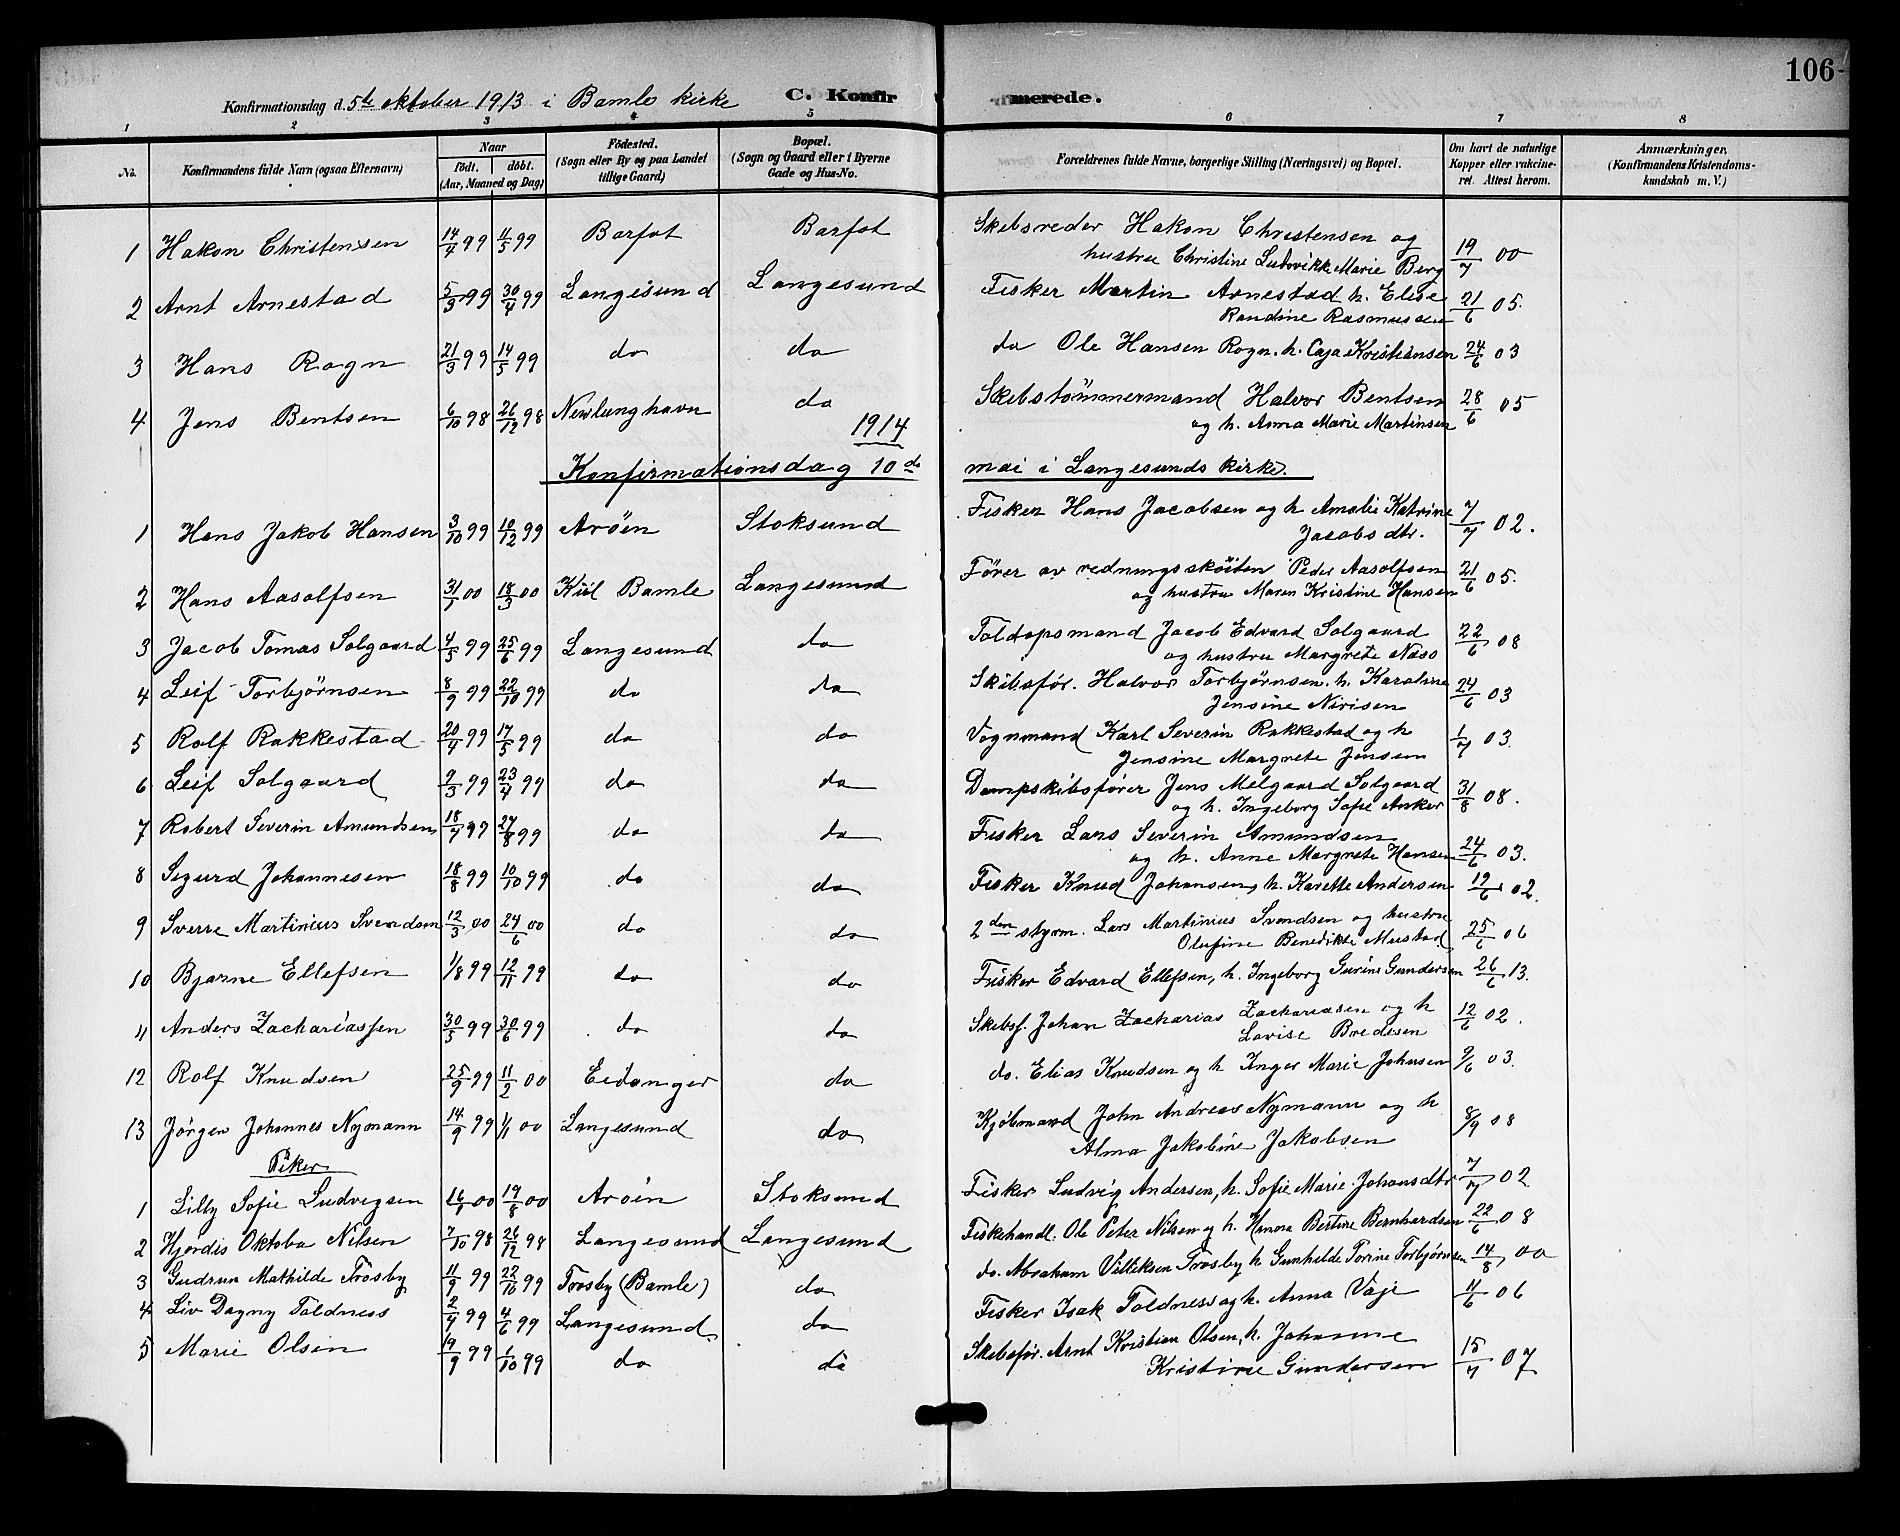 106
Konfirmationsdag d. 5te oktober 1913 i Bamle kirke C. Konfirmerede.
1 2 3 4 5 6 7 8
No. Konfirmandens fulde Navn (ogsaa Efternavn) Naar födt. döbt. (Aar, Maaned og Dag) Födested. (Sogn eller By og paa Landet tillige Gaard) Bopæl. (Sogn og Gaard eller i Byerne Gade og Hus-No. Forældrenes fulde Navne, borgerlige Stilling (Næringsvei) og Bopæl. Om havt de naturlige Kopper eller vakcineret. Attest herom. Anmærkninger. (Konfirmandens Kristendomskundskab m. V.)
1 Hakon Christensen 14/4 99 11/5 99 Barfot Barfot Skibsreder Hakon Christensen og
hustru Christine Ludovikke Marie Berg 19/7 00
2 Arnt Arnestad 5/3 99 30/4 99 Langesund Langesund Fisker Martin Arnestad h. Elise
Randine Rasmussen 21/6 05.
3 Hans Rogn 21/3 99 14/5 99 do do do Ole Hansen Rogn. h. Caja Kristiansen 24/6 03
4 Jens Bentsen 6/10 98 26/12 98 Nevlunghavn do Skibstömmermand Halvor Bentsen
og h. Anna Marie Martinsen 28/6 05
1914
Konfirmationsdag 10de mai i Langesunds kirke.
1 Hans Jakob Hansen 3/10 99 10/12 99 Aröen Stoksund Fisker Hans Jacobsen og h. Amalie Katrine
Jacobsdtr. 7/7 02.
2 Hans Aasolfsen 31/1 00 18/3 00 Kiil Bamle Langesund Fører av redningsskøiten Peder Aasolfsen
og hustru Maren Kristine Hansen 21/6 05.
3 Jacob Tomas Solgaard 4/5 99 25/6 99 Langesund do Toldopsmand Jacob Edvard Solgaard
og hustru Margrete Næss 22/6 08
4 Leif Torbjørnsen 8/9 99 22/10 99 do do Skibsfør. Halvor Torbjørnsen. h. Karoline
Jensine Nirisen 24/6 03
5 Rolf Rakkestad 20/4 99 17/5 99 do do Vognmand Karl Severin Rakkestad og h
Jensine Margrete Jensen 1/7 03.
6 Leif Solgaard 9/3 99 23/4 99 do do Dampskibsfører Jens Melgaard Solgaard
og h. Ingeborg Sofie Anker 31/8 08.
7 Robert Severin Amundsen 18/7 99 27/8 99 do do Fisker Lars Severin Amundsen
og h. Anne Margrete Hansen 24/6 03.
8 Sigurd Johannesen 18/8 99 10/10 99 do do Fisker Knud Johansen, h. Karette Andersen 19/6 02.
9 Sverre Martinius Svendsen 12/3 00 24/6 00 do do 2den styrm. Lars Martinius Svendsen og hustru
Olufine Benedikte Mustad 25/6 06
10 Bjarne Ellefsen 1/8 99 12/11 99 do do Fisker Edvard Ellefsen, h. Ingeborg Gurine Gundersen 26/6 13.
11 Anders Zachariassen 30/5 99 30/6 99 do do Skibsf. Johan Zacharias Zachariasen og h
Lovise Bredesen 12/6 02.
12 Rolf Knudsen 25/9 99 11/2 00 Eidanger do do. Elias Knudsen og h Inger Marie Johnsen 9/6 03.
13 Jørgen Johannes Nymann 14/9 99 1/1 00 Langesund do Kjøbmand John Andreas Nymann og h
Alma Jakobine Jakobsen 8/9 08
Piker
1 Lilly Sofie Ludvigsen 16/7 00 19/8 00 Aröen Stoksund Fisker Ludvig Andersen, h. Sofie Marie Johansdtr 7/7 02
2 Hjørdis Oktoba Nilsen 7/10 98 26/12 98 Langesund Langesund Fiskehandl. Ole Peter Nilsen og h. Hanna Bertine Bernhardsen 22/6 08
3 Gudrun Mathilde Trosby 11/9 99 22/10 99 Trosby (Bamle) do do. Abraham Villiksen Trosby h Gunhilde Torine Torbjørnsen 14/8 00
4 Liv Dagny Toldness 2/4 99 4/6 99 Langesund do Fisker Isak Toldness og h. Anna Vaje 11/6 06
5 Marie Olsen 19/9 99 1/10 99 do do Skibsfør. Arnt Kristian Olsen, h. Johanne
Kristine Gundersen 15/7 07